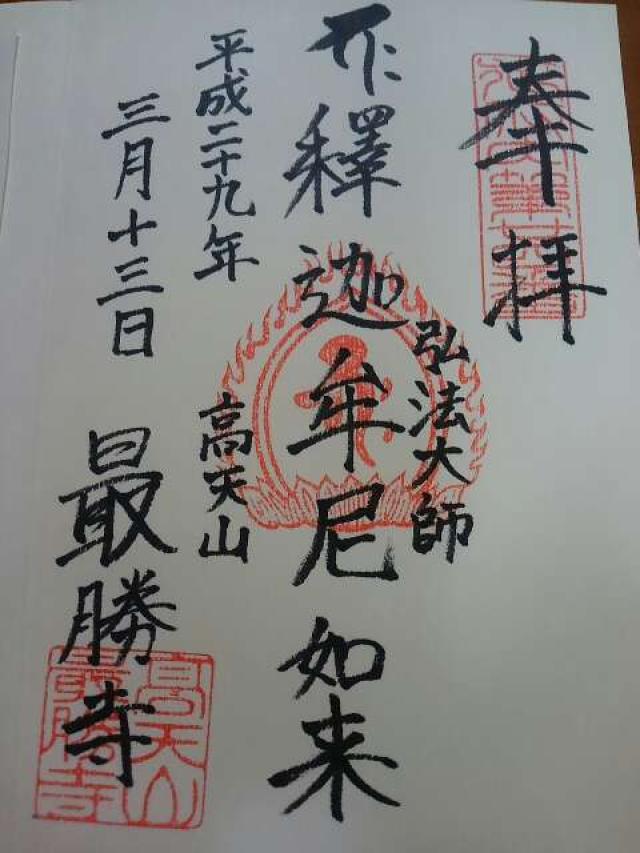 奉拝
弘法大師
釋迦牟尼如来
平成二十九年
高天山
三月十三日
最勝寺
高天山
最勝寺